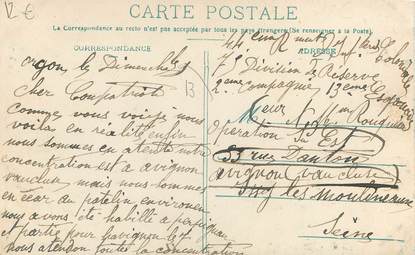 12€
CARTE POSTALE
La Correspondance au recto n'est pas acceptée par tous les pays étrangers (Se renseigner à la Poste)
CORRESPONDANCE
ADRESSE
le Dimanche
13
cher Compatriote
comme vous voiyé nous
voila en réalité enfin
nous sommes en atente notre
concentration est a avignon
vaucluse mais nous sommes
en écar au patelin environen
nous avons été habillé a perpignan
et partie pour avignon le 7
nous atendon toute la concentration
7e Division de Réserve
2eme Compagnie 13eme
Mr Rouquier
Opération
Est
53 rue Danton
avignon Vaucluse
Issy les moulineaux
Seine